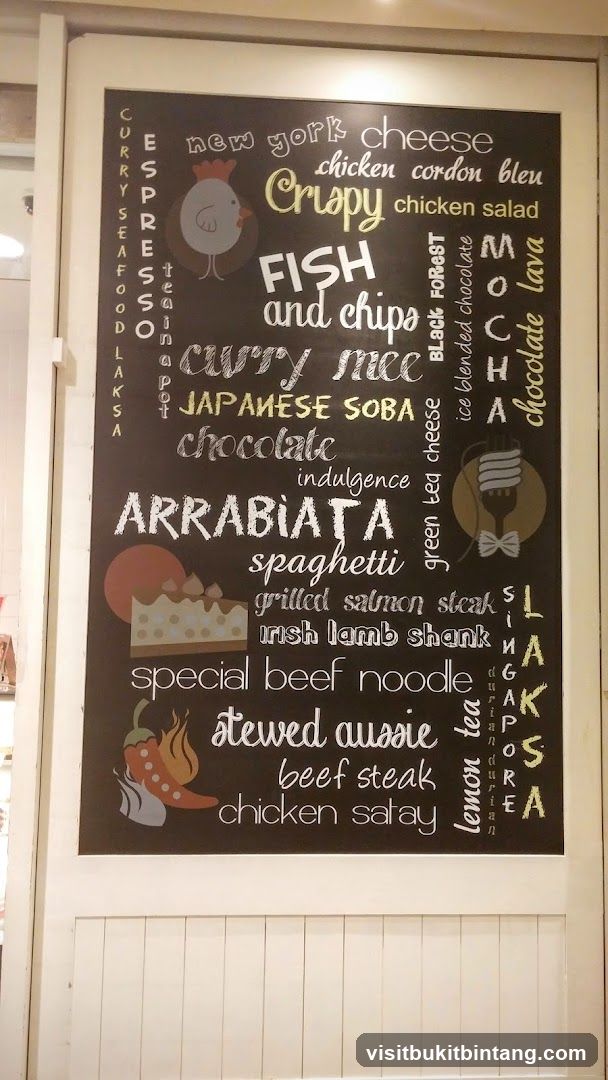 CURRY SEAFOOD LAKSA
ESPRESSO
tea in a pot
new york cheese
chicken cordon bleu
Crispy chicken salad
FISH
and chips
BLACK FOREST
ice blended chocolate
MOCHA
chocolate lava
curry mee
JAPANESE SOBA
chocolate
indulgence
green tea cheese
ARRABiATA
spaghetti
grilled salmon steak
irish lamb shank
special beef noodle
stewed aussie
beef steak
chicken satay
lemon tea
durian durian
SiNGAPORE
LAKSA
visitbukitbintang.com